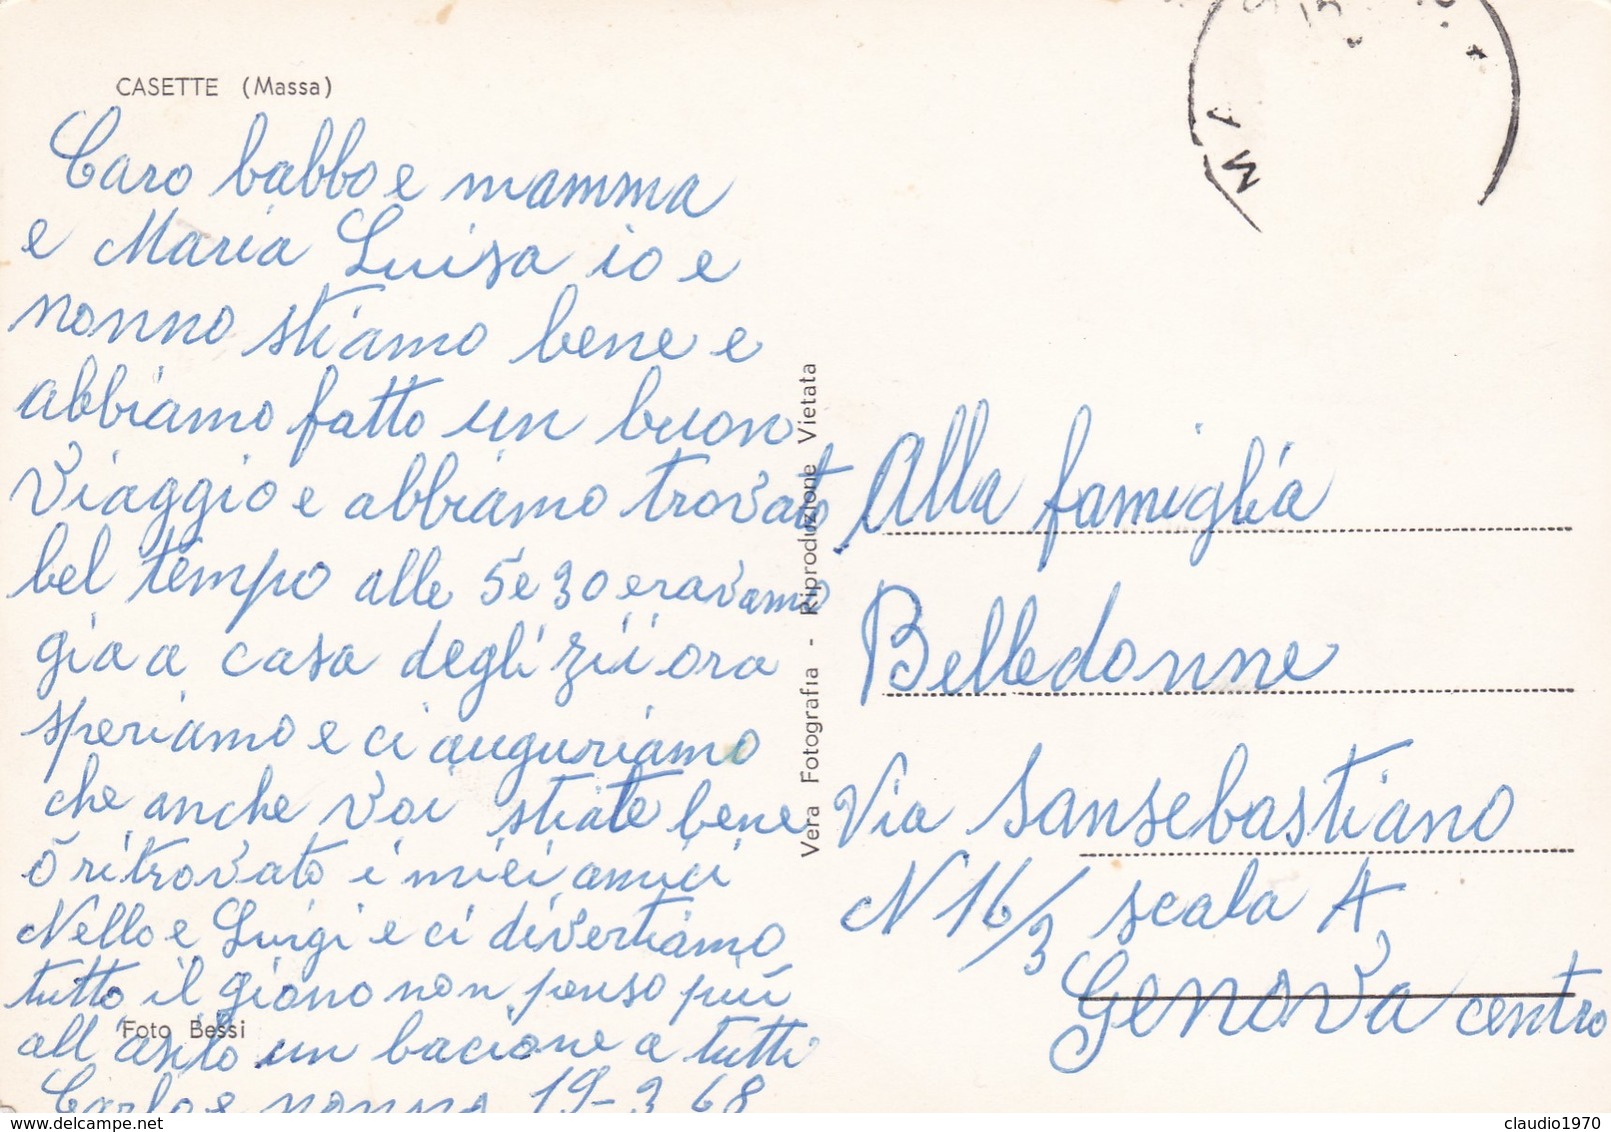 CASETTE (Massa)
Caro babbo e mamma
e Maria Luisa io e
nonno stiamo bene e
abbiamo fatto un buon
viaggio e abbiamo trovato
bel tempo alle 5 e 30 eravamo
gia a casa degli zii ora
speriamo e ci auguriamo
che anche voi stiate bene
ō ritrovato i miei amici
Nello e Luigi e ci divertiamo
tutto il giono non penso più
all'asilo un bacione a tutti
Carlo e nonno 19-3 68
Foto Bessi
Vera Fotografia - Riproduzione Vietata
MA
Alla famiglia
Belledonne
Via Sansebastiano
N 16/3 scala A
Genova centro
www.delcampe.net
claudio1970